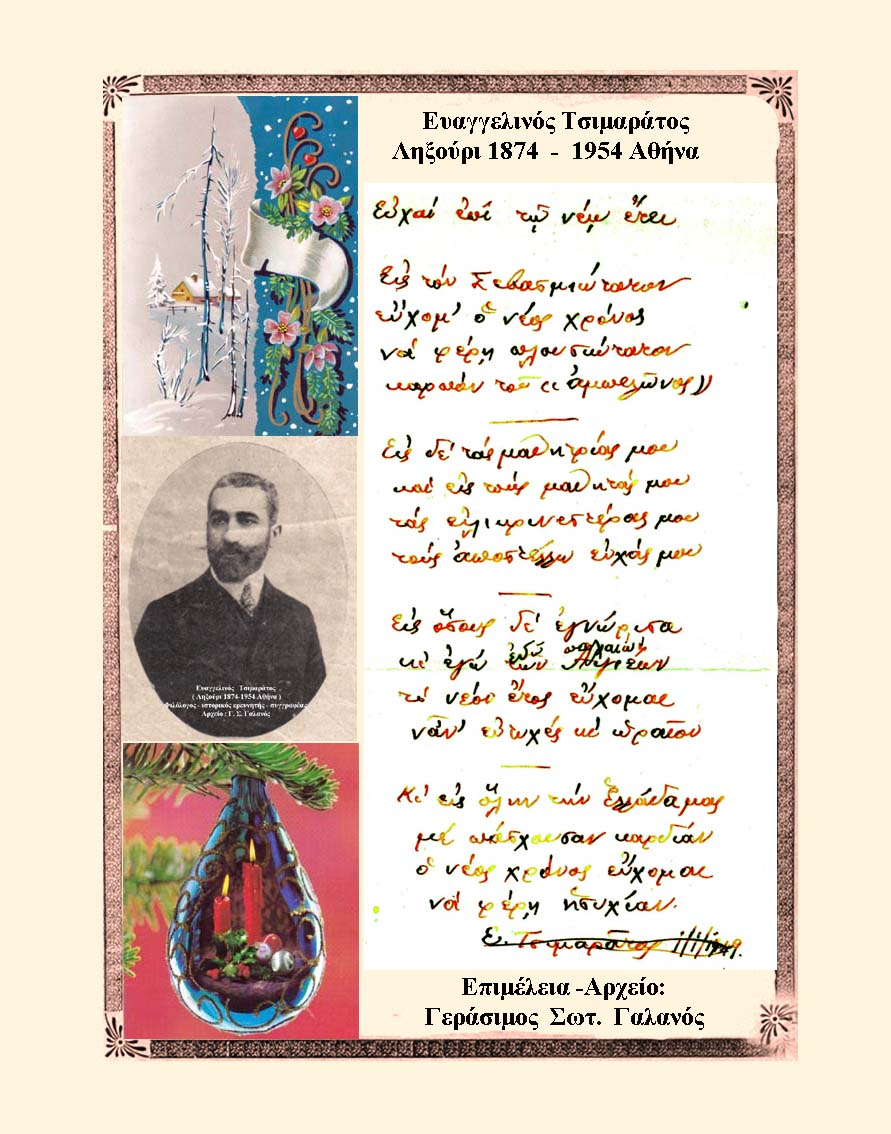 Ευαγγελινός Τσιμαράτος
Ληξούρι 1874 - 1954 Αθήνα
Εὐχαί ἐπί τῷ νέῳ ἔτει
Εἰς τόν Σεβασμιώτατον
εὔχομ' ὁ νέος χρόνος
νά φέρῃ πλουσιώτατον
καρπόν τοῦ «ἀμπελῶνος»
Εἰς δέ τάς μαθητρίας μου
καί εἰς τούς μαθητάς μου
τάς εἰλικρινεστέρας μου
τούς ἀποστέλλω εὐχάς μου
Εἰς ὅσους δέ ἐγνώρισα
κι ἐγώ ἐδῶ
τό νέον ἔτος εὔχομαι
νἆν' εὐτυχές κι ὡραῖον
Κι' εἰς ὅλην τήν Ἑλλάδα μας
μέ πάσχουσαν καρδίαν
ὁ νέος χρόνος εὔχομαι
νά φέρῃ ἡσυχίαν.
Ε. Τσιμαρᾶτος 1/1/1949.
Ευαγγελινός Τσιμαράτος
( Ληξούρι 1874-1954 Αθήνα )
Φιλόλογος - ιστορικός ερευνητής - συγγραφέας
Αρχείο : Γ. Σ. Γαλανός
Επιμέλεια -Αρχείο:
Γεράσιμος Σωτ. Γαλανός